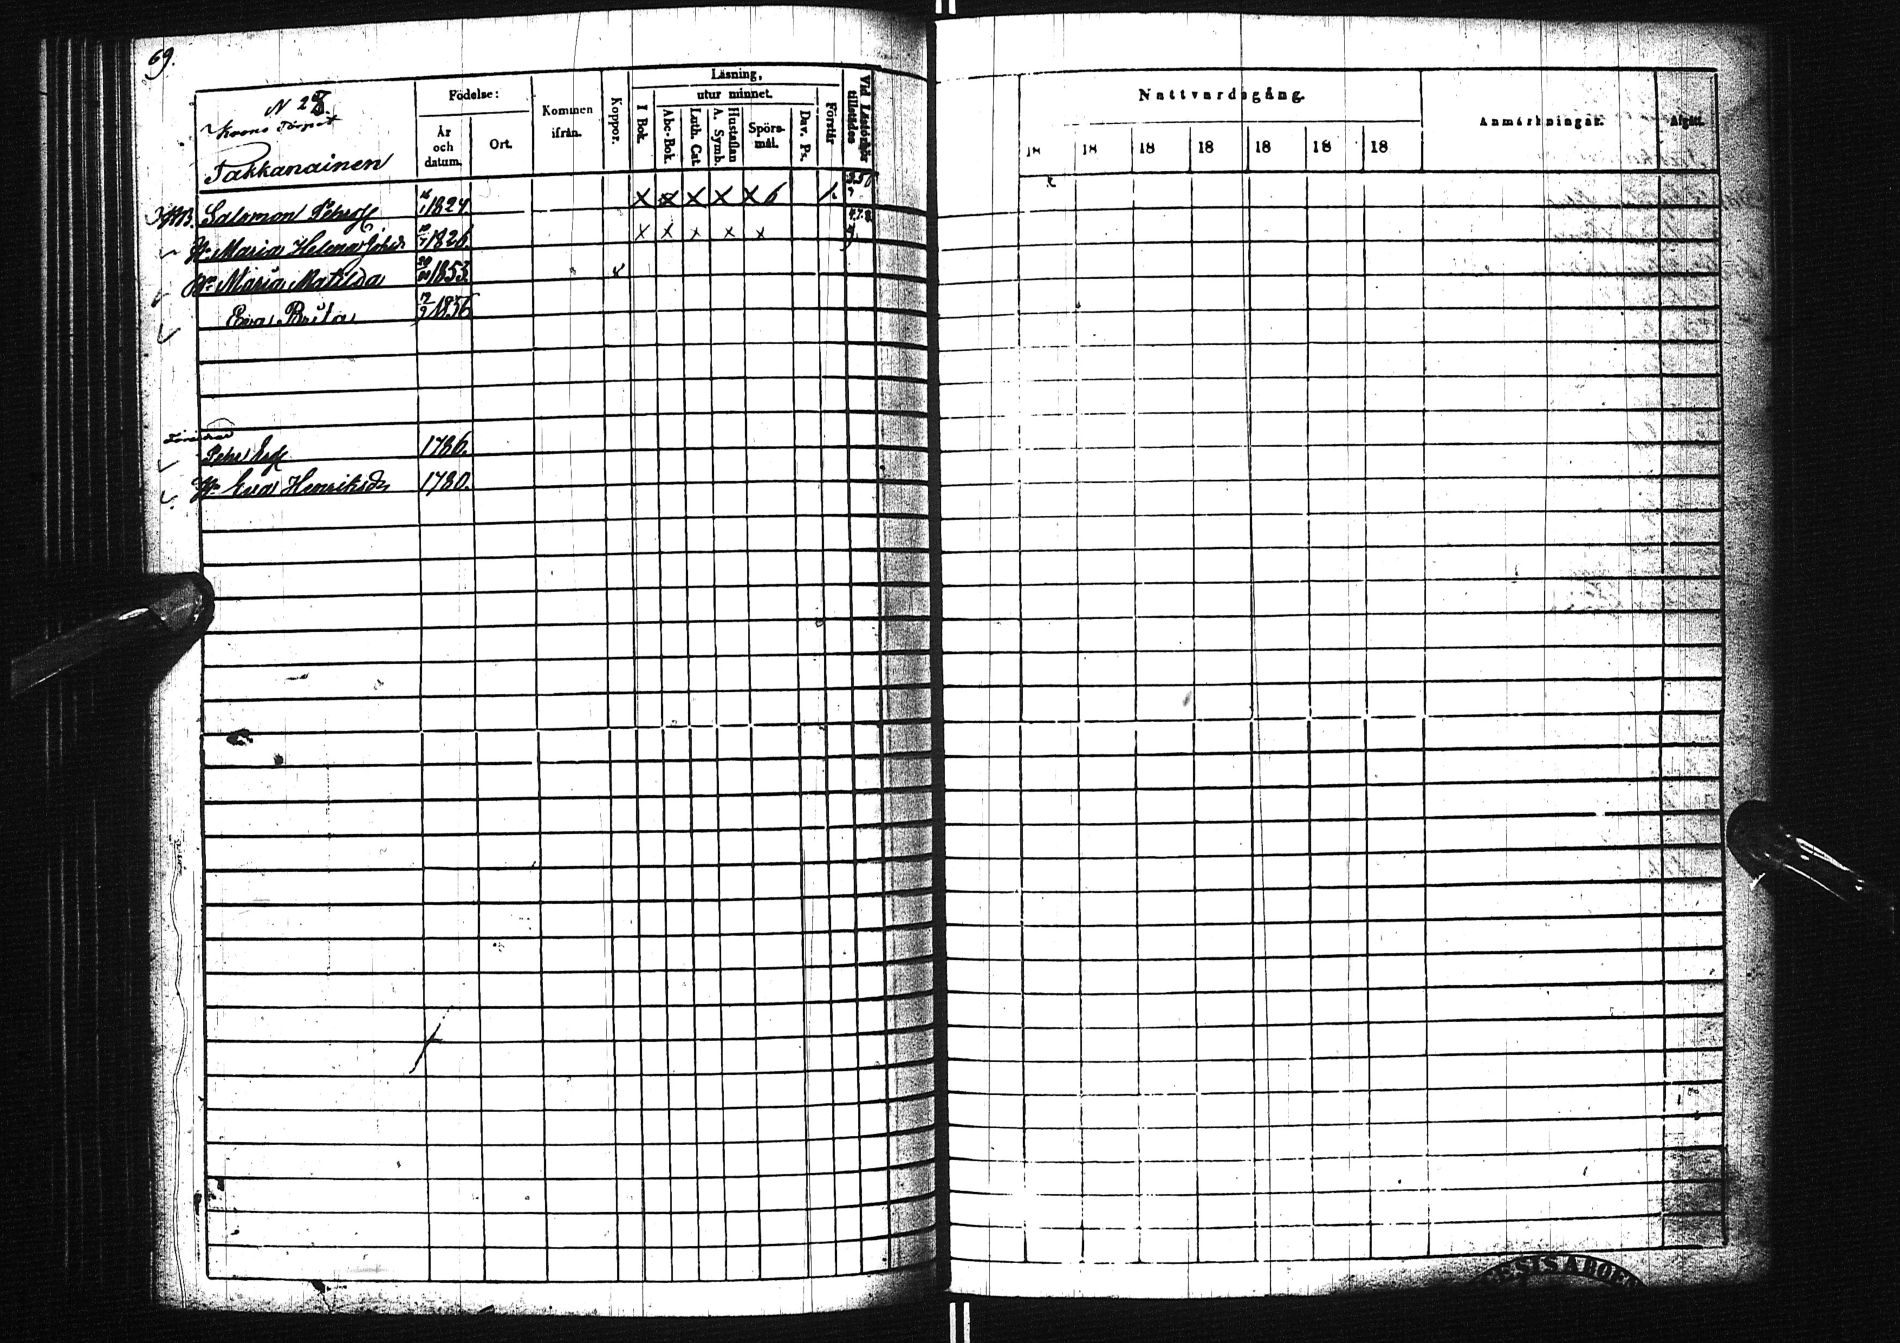 69.
N 28
Krono Torpet
Takkanainen
Födelse:
År och datum.
Ort.
Kommen ifrån.
Koppor.
Läsning,
utur minnet.
I Bok.
Abc-Bok.
Luth. Cat.
Hustaflan A. Symb.
Spörsmål.
Dav. Ps.
Förstår
Vid Läsförhör tillstädes
Nattvardsgång.
18 18 18 18 18 18 18
Anmärkningar.
Afgått.
Salomon Pehrss 16/1 1824. X X X X X 6
Hu Maria Helena 1826. X X X X X
Dr Maria Matilda 1853.
Eva Brita 12/9 1856
Pehr 1786.
Hu Eva Henriksdr 1780.